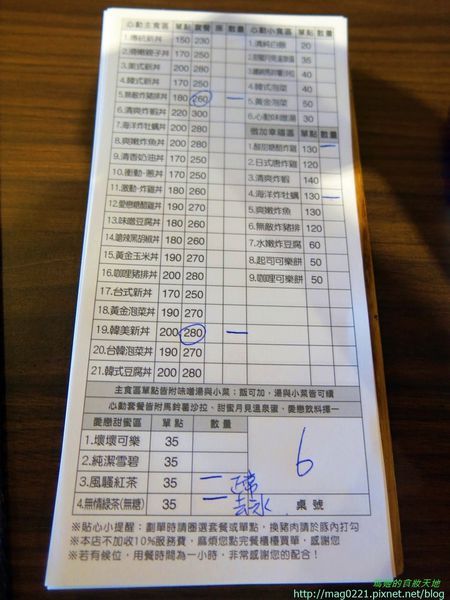 心動主食區 單點 套餐 豚 數量
1.傳統新丼 150 230
2.滑嫩親子丼 170 250
3.美式新丼 200 280
4.韓式新丼 170 250
5.無敵炸豬排丼 180 260 一
6.清爽炸蝦丼 220 300
7.海洋炸牡蠣丼 200 280
8.爽嫩炸魚丼 200 280
9.清香奶油丼 170 250
10.衝動·蔥丼 170 250
11.激動·炸雞丼 180 260
12.愛戀糖醋雞丼 190 270
13.味噌豆腐丼 180 260
14.嗆辣黑胡椒丼 180 260
15.黃金玉米丼 190 270
16.咖哩豬排丼 200 280
17.台式新丼 170 250
18.黃金泡菜丼 190 270
19.韓美新丼 200 280 一
20.台韓泡菜丼 190 270
21.韓式豆腐丼 200 280
心動小食區 單點 數量
1.清純白飯 20
35
40
4.韓式泡菜 40
5.黃金泡菜 50
6.心動味噌湯 30
倍加幸福區 單點 數量
1.酸甜糖醋炸雞 130 一
2.日式唐炸雞 120
3.清爽炸蝦 140
4.海洋炸牡蠣 130 一
5.爽嫩炸魚 130
6.無敵炸豬排 120
7.水嫩炸豆腐 60
8.起司可樂餅 50
9.咖哩可樂餅 50
主食區單點皆附味噌湯與小菜；飯可加，湯與小菜皆可續
心動套餐皆附馬鈴薯沙拉、甜蜜月見溫泉蛋、愛戀飲料擇一
愛戀甜蜜區 單點 數量
1.壞壞可樂 35
2.純潔雪碧 35
3.風騷紅茶 35 二 正常
4.無情綠茶(無糖) 35 二 去冰
6
桌號
※貼心小提醒：劃單時請圈選套餐或單點，換豬肉請於豚內打勾
※本店不加收10%服務費，麻煩您點完餐櫃檯買單，感謝您
※若有候位，用餐時間為一小時，非常感謝您的配合！
瑪姬的食妝天地
http://mag0221.pixnet.net/blog